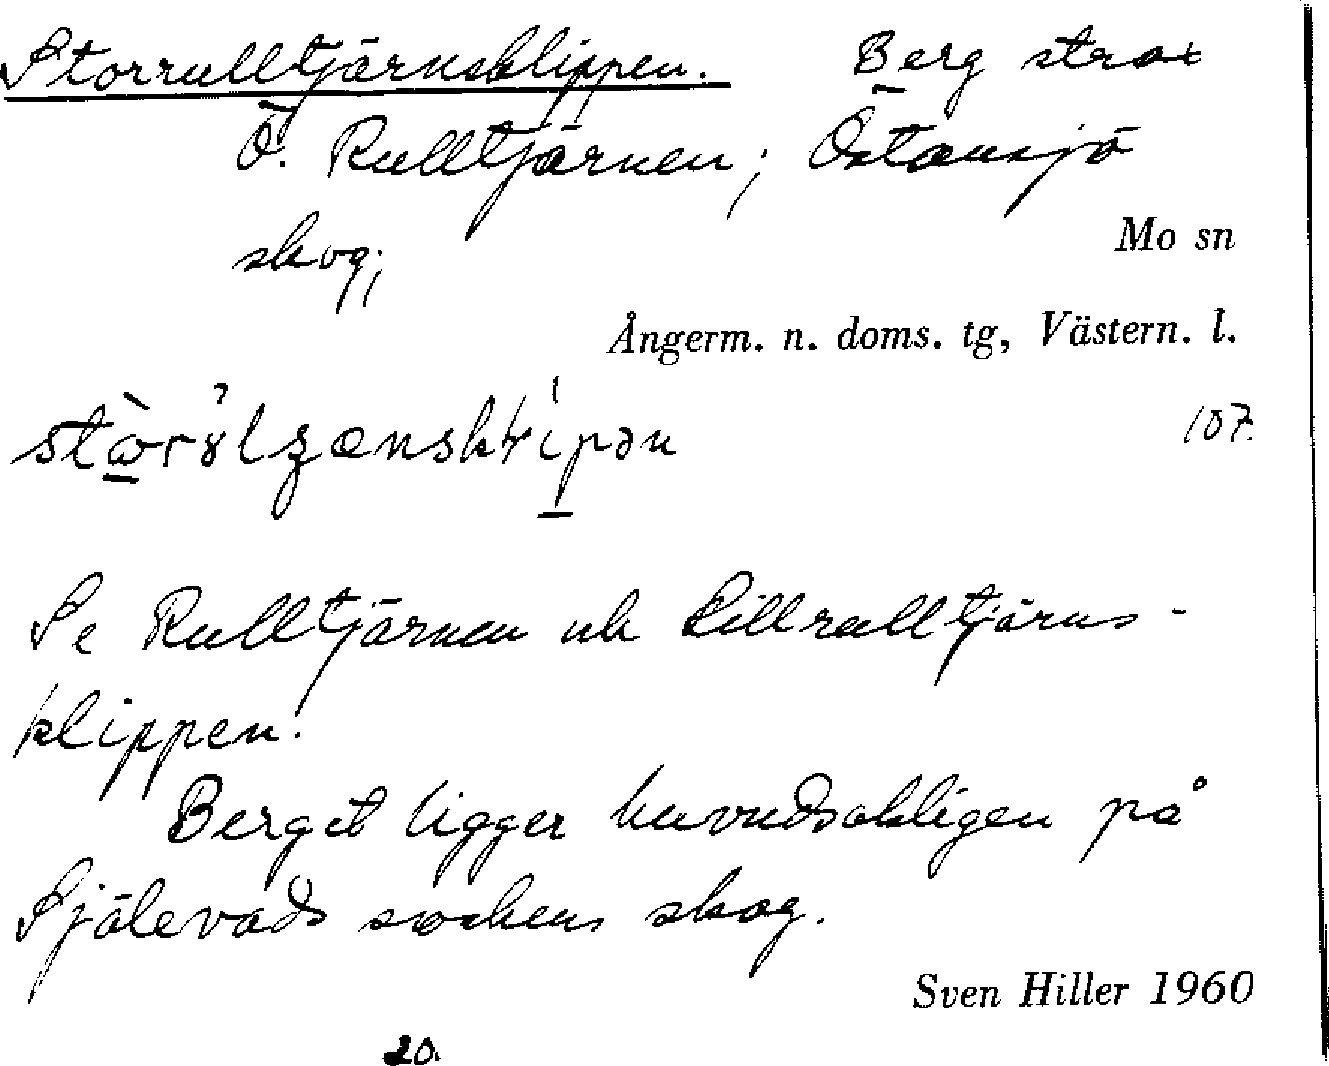 Storrulltjärnsklippen. Berg strax
Ö. Rulltjärnen; Östansjö
skog;
Mo sn
Ångerm. n. doms. tg, Västern. l.
107.
Se Rulltjärnen och Lillrulltjärns-
klippen.
Berget ligger huvudsakligen på
Själevads sockens skog.
Sven Hiller 1960
20.